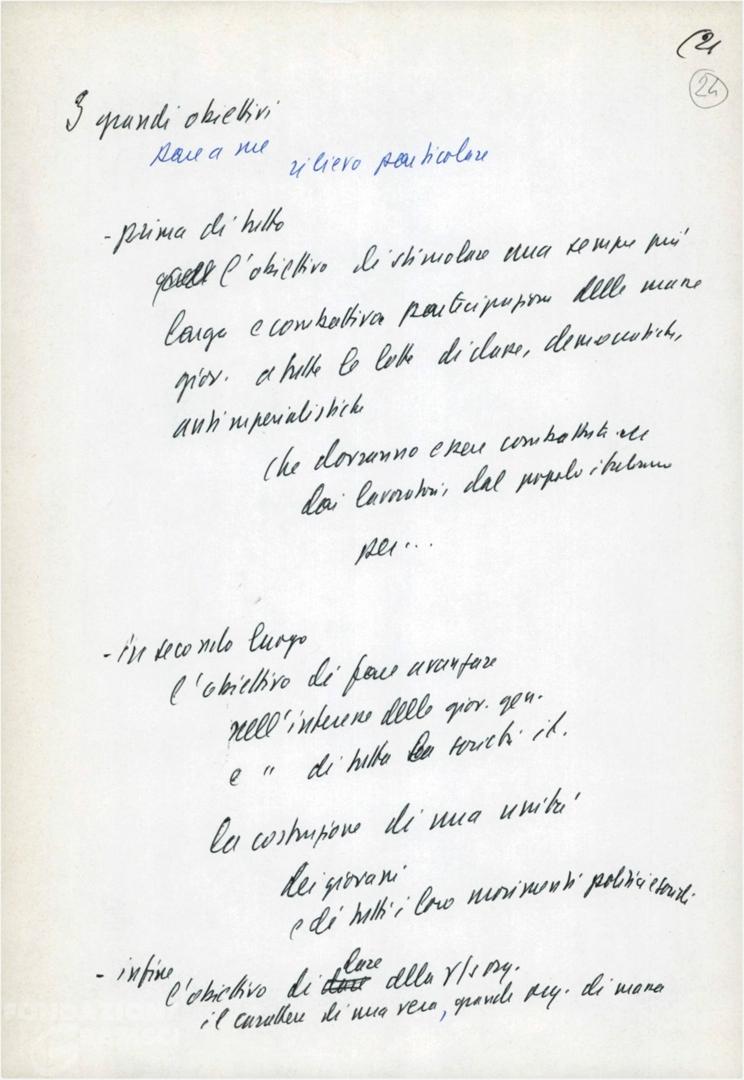 (2
24
3 grandi obiettivi
pare a me rilievo particolare
- prima di tutto
l'obiettivo di stimolare una sempre più
larga e combattiva partecipazione delle masse
giov. a tutte le lotte di classe, democratiche,
antimperialistiche
che dovranno essere combattute
dai lavoratori, dal popolo italiano
per...
- in secondo luogo
l'obiettivo di fare avanzare
nell'interesse delle giov. gen.
e " di tutta la società it.
la costruzione di una unità
dei giovani
e di tutti i loro movimenti politici e sociali
- infine
l'obiettivo di dare alla v/s org.
il carattere di una vera, grande org. di massa
FONDAZIONE
GRAMSCI